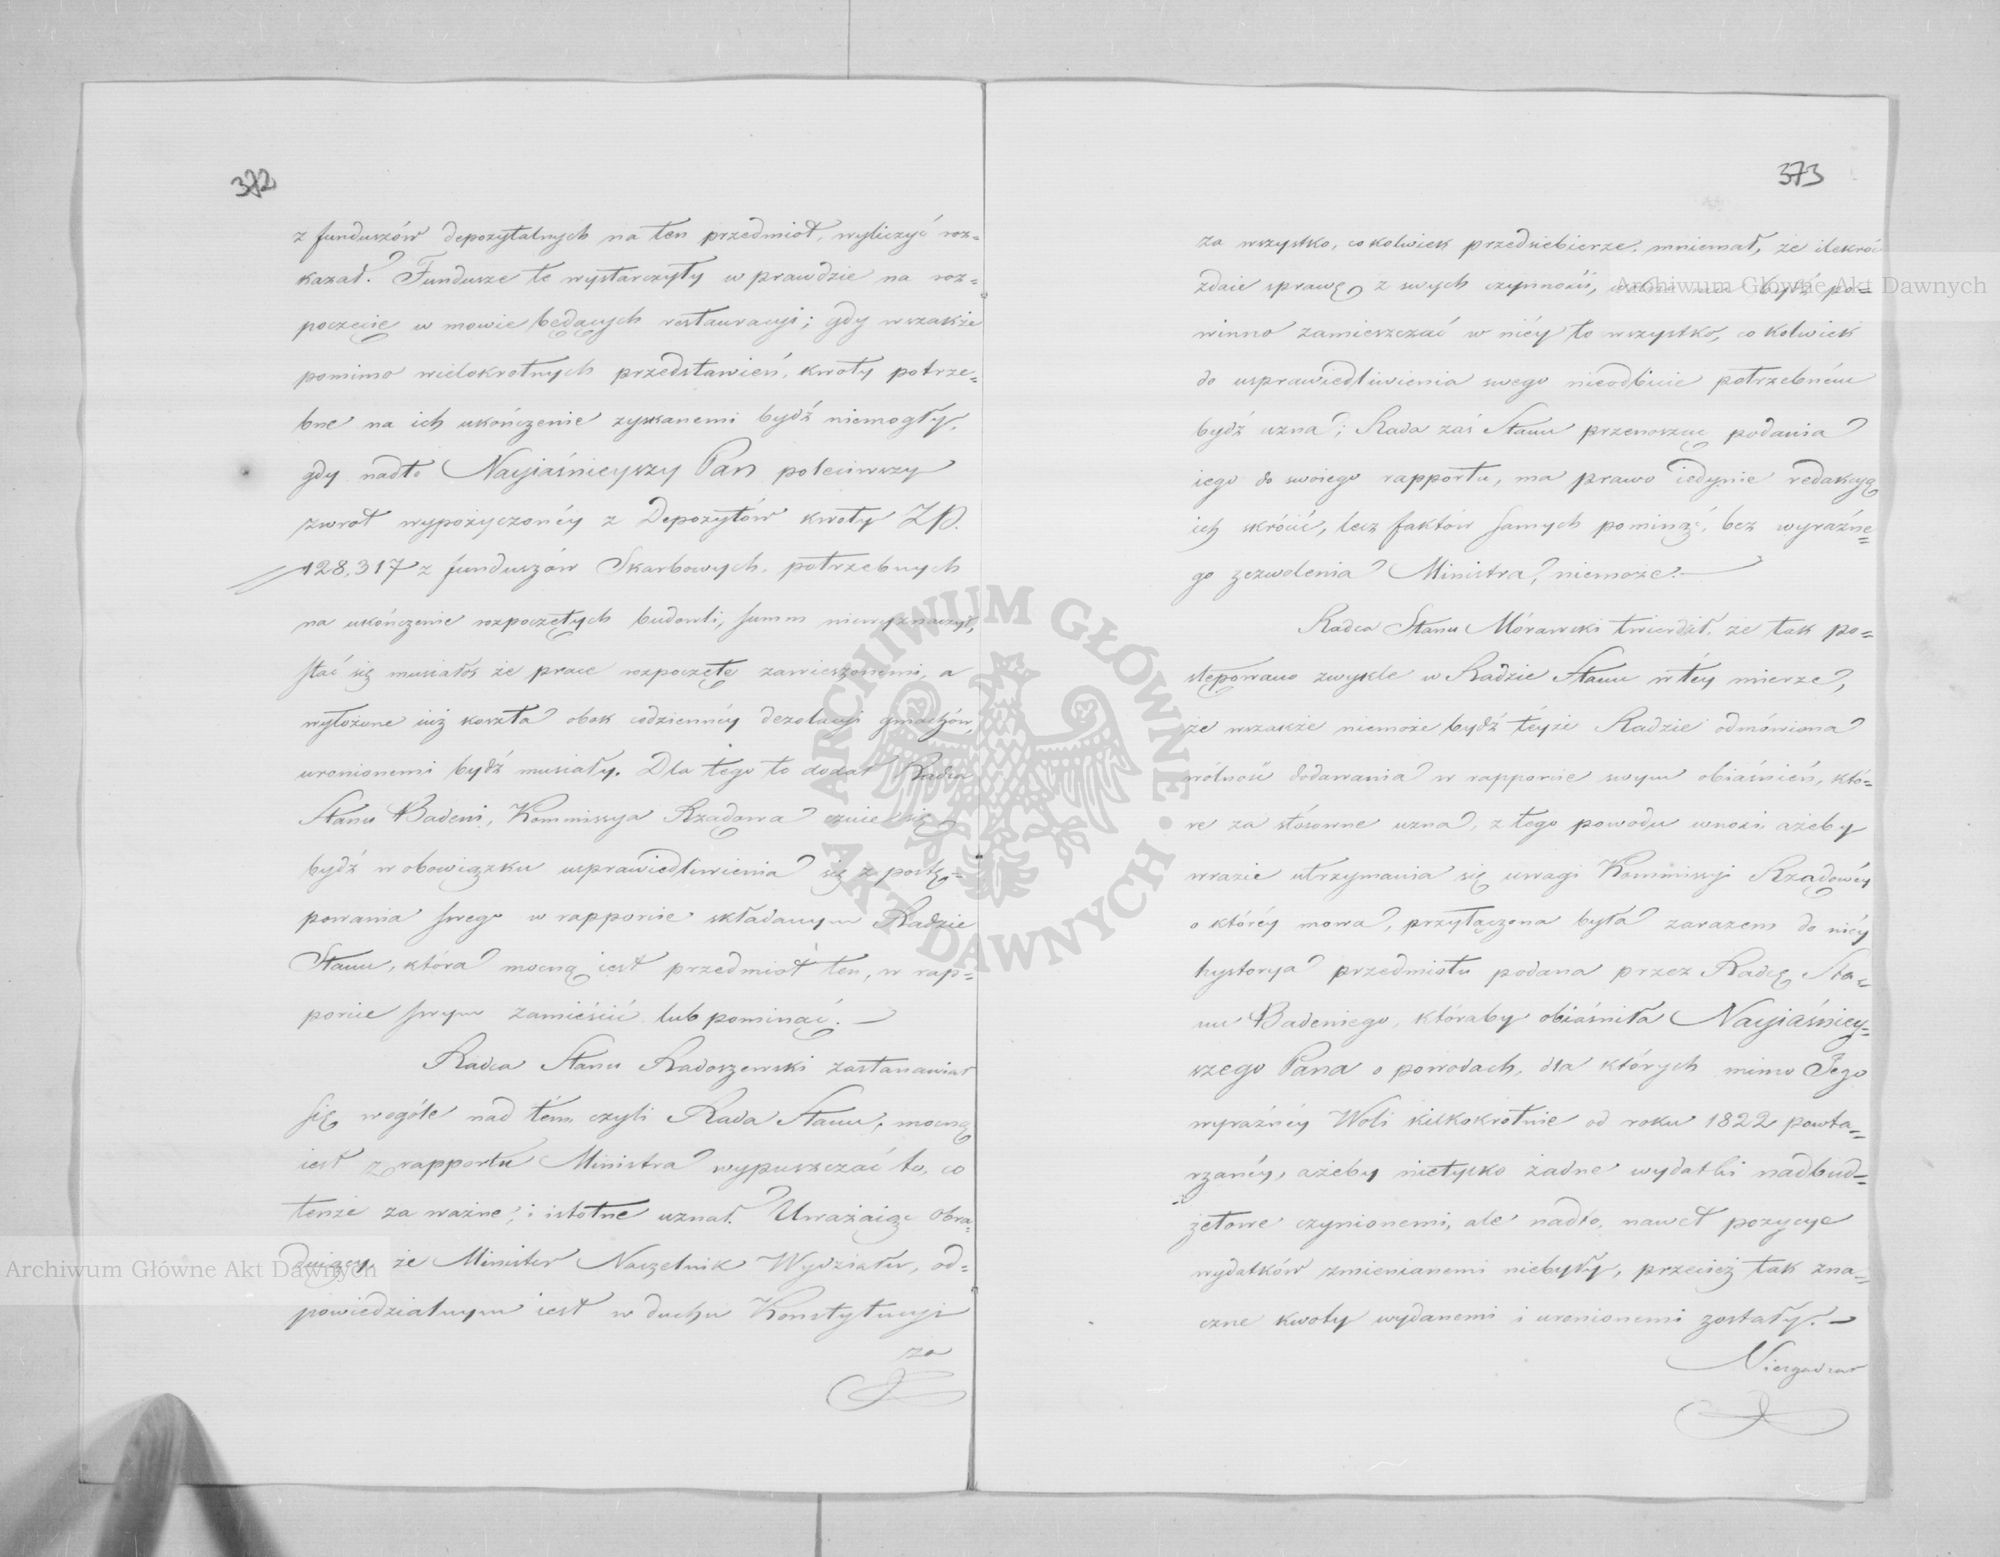 372
z funduszów depozytalnych na ten przedmiot, wyliczyć roz=
kazał. Fundusze te wystarczyły w prawdzie na roz=
poczęcie w mowie będących restauracyi; gdy wszakże
pomimo wielokrotnych przedstawień, kwoty potrze=
bne na ich ukończenie zyskanemi bydź niemogły,
gdy nadto Nayjaśnieyszy Pan poleciwszy
zwrot wypożyczonéy z Depozytów kwoty Zp.
128,317 z funduszów Skarbowych, potrzebnych
na ukończenie rozpoczętych budowli, summ niewyznaczył,
stać się musiało że prace rozpoczęte zawieszonemi, a
wyłożone iuż koszta obok codziennéy dezolacyi gmachów,
uronionemi bydź musiały. Dla tego to dodał Radca
Stanu Badeni, Kommissya Rządowa czuie się
bydź w obowiązku usprawiedliwienia się z postę=
powania swego w rapporcie składanym Radzie
Stanu, która mocną iest przedmiot ten, w rap=
porcie swym zamieścić lub pominąć. —
Radca Stanu Radoszewski zastanawiał
się wogóle nad tém czyli Rada Stanu, mocną
iest z rapportu Ministra wypuszczać to, co
tenże za ważne, i istotne uznał. Uważaiąc obra=
duiący, że Minister Naczelnik Wydziału, od=
powiedzialnym iest w duchu Konstytucyi
za
373
za wszystko, cokolwiek przedsiębierze, mniemał, że ilekroć
zdaie sprawę z swych czynności, bydź po=
winno zamieszczać w niéy to wszystko, cokolwiek
do usprawiedliwienia swego nieodbicie potrzebném
bydź uzna; Rada zaś Stanu przenosząc podania
iego do swoiego rapportu, ma prawo iedynie redakcyą
ich skrócić, lecz faktów samych pominąć, bez wyraźne=
go zezwolenia Ministra, niemoże. —
Radca Stanu Morawski twierdził, że tak po=
stępowano zwykle w Radzie Stanu w téy mierze,
że wszakże niemoże bydź téyże Radzie odmówiona
wolność dodawania w rapporcie swym obiaśnień, któ=
re za stósowne uzna, z tego powodu wnosi, ażeby
w razie utrzymania się uwagi Kommissyi Rządowéy
o któréy mowa, przyłączona była zarazem do niéy
hystorya przedmiotu podana przez Radcę Sta=
nu Badeniego, któraby obiaśniła Nayjaśniey=
szego Pana o powodach, dla których mimo Jego
wyraźnéy Woli kilkokrotnie od roku 1822 powta=
rzanéy, ażeby nietylko żadne wydatki nadbud=
żetowe czynionemi, ale nadto, nawet pozycye
wydatków zmienianemi niebyły, przecięż tak zna=
czne kwoty wydanemi i uronionemi zostały. —
Archiwum Główne Akt Dawnych
Archiwum Główne Akt Dawnych
ARCHIWUM GŁÓWNE • AKT DAWNYCH •